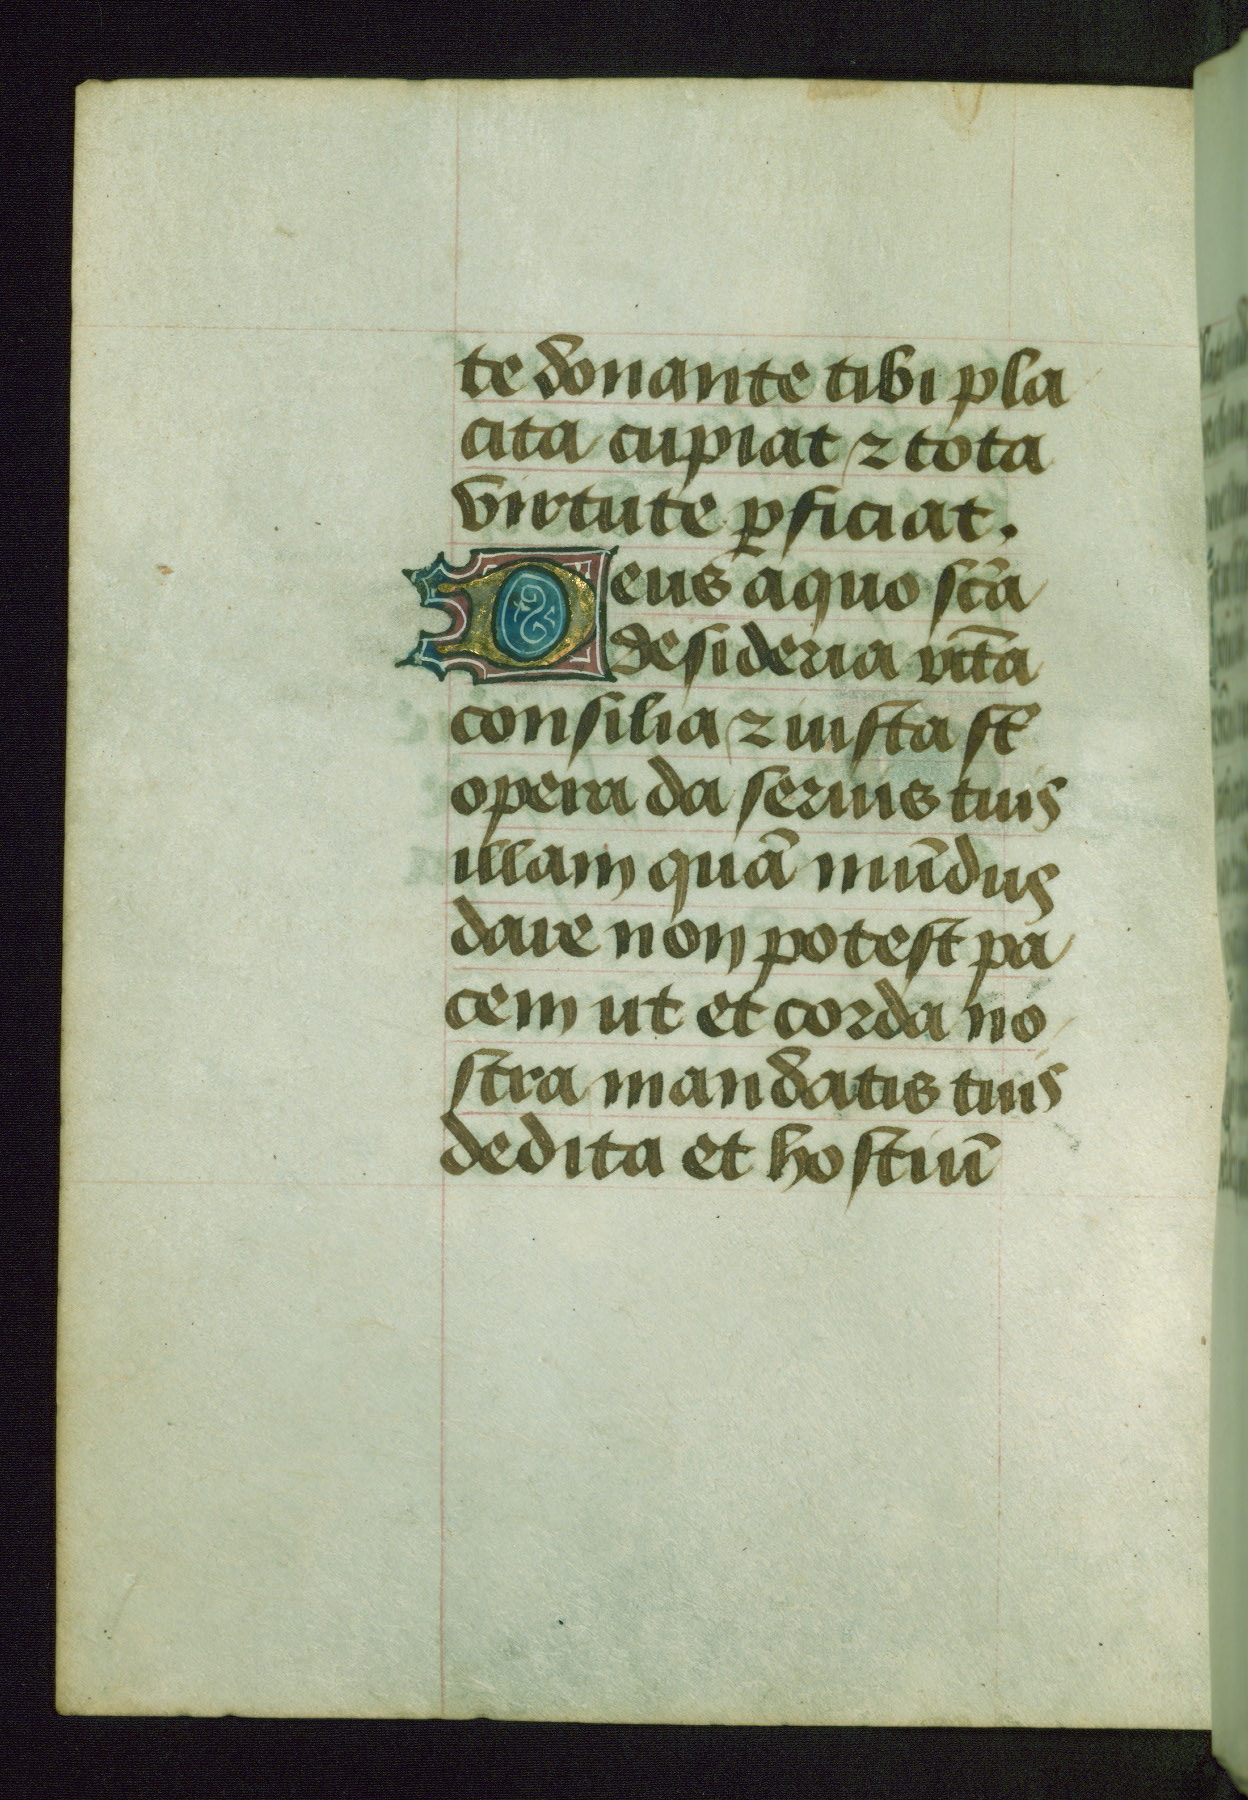 te donante tibi pla
cita cupiat ⁊ tota
virtute ꝑficiat.
Deus a quo sc̄a
desideria rc̄ta
consilia ⁊ iusta st̄
opera da seruis tuis
illam quā mūdus
dare non potest pa
cem ut et corda no
stra mandatis tuis
dedita et hostiū